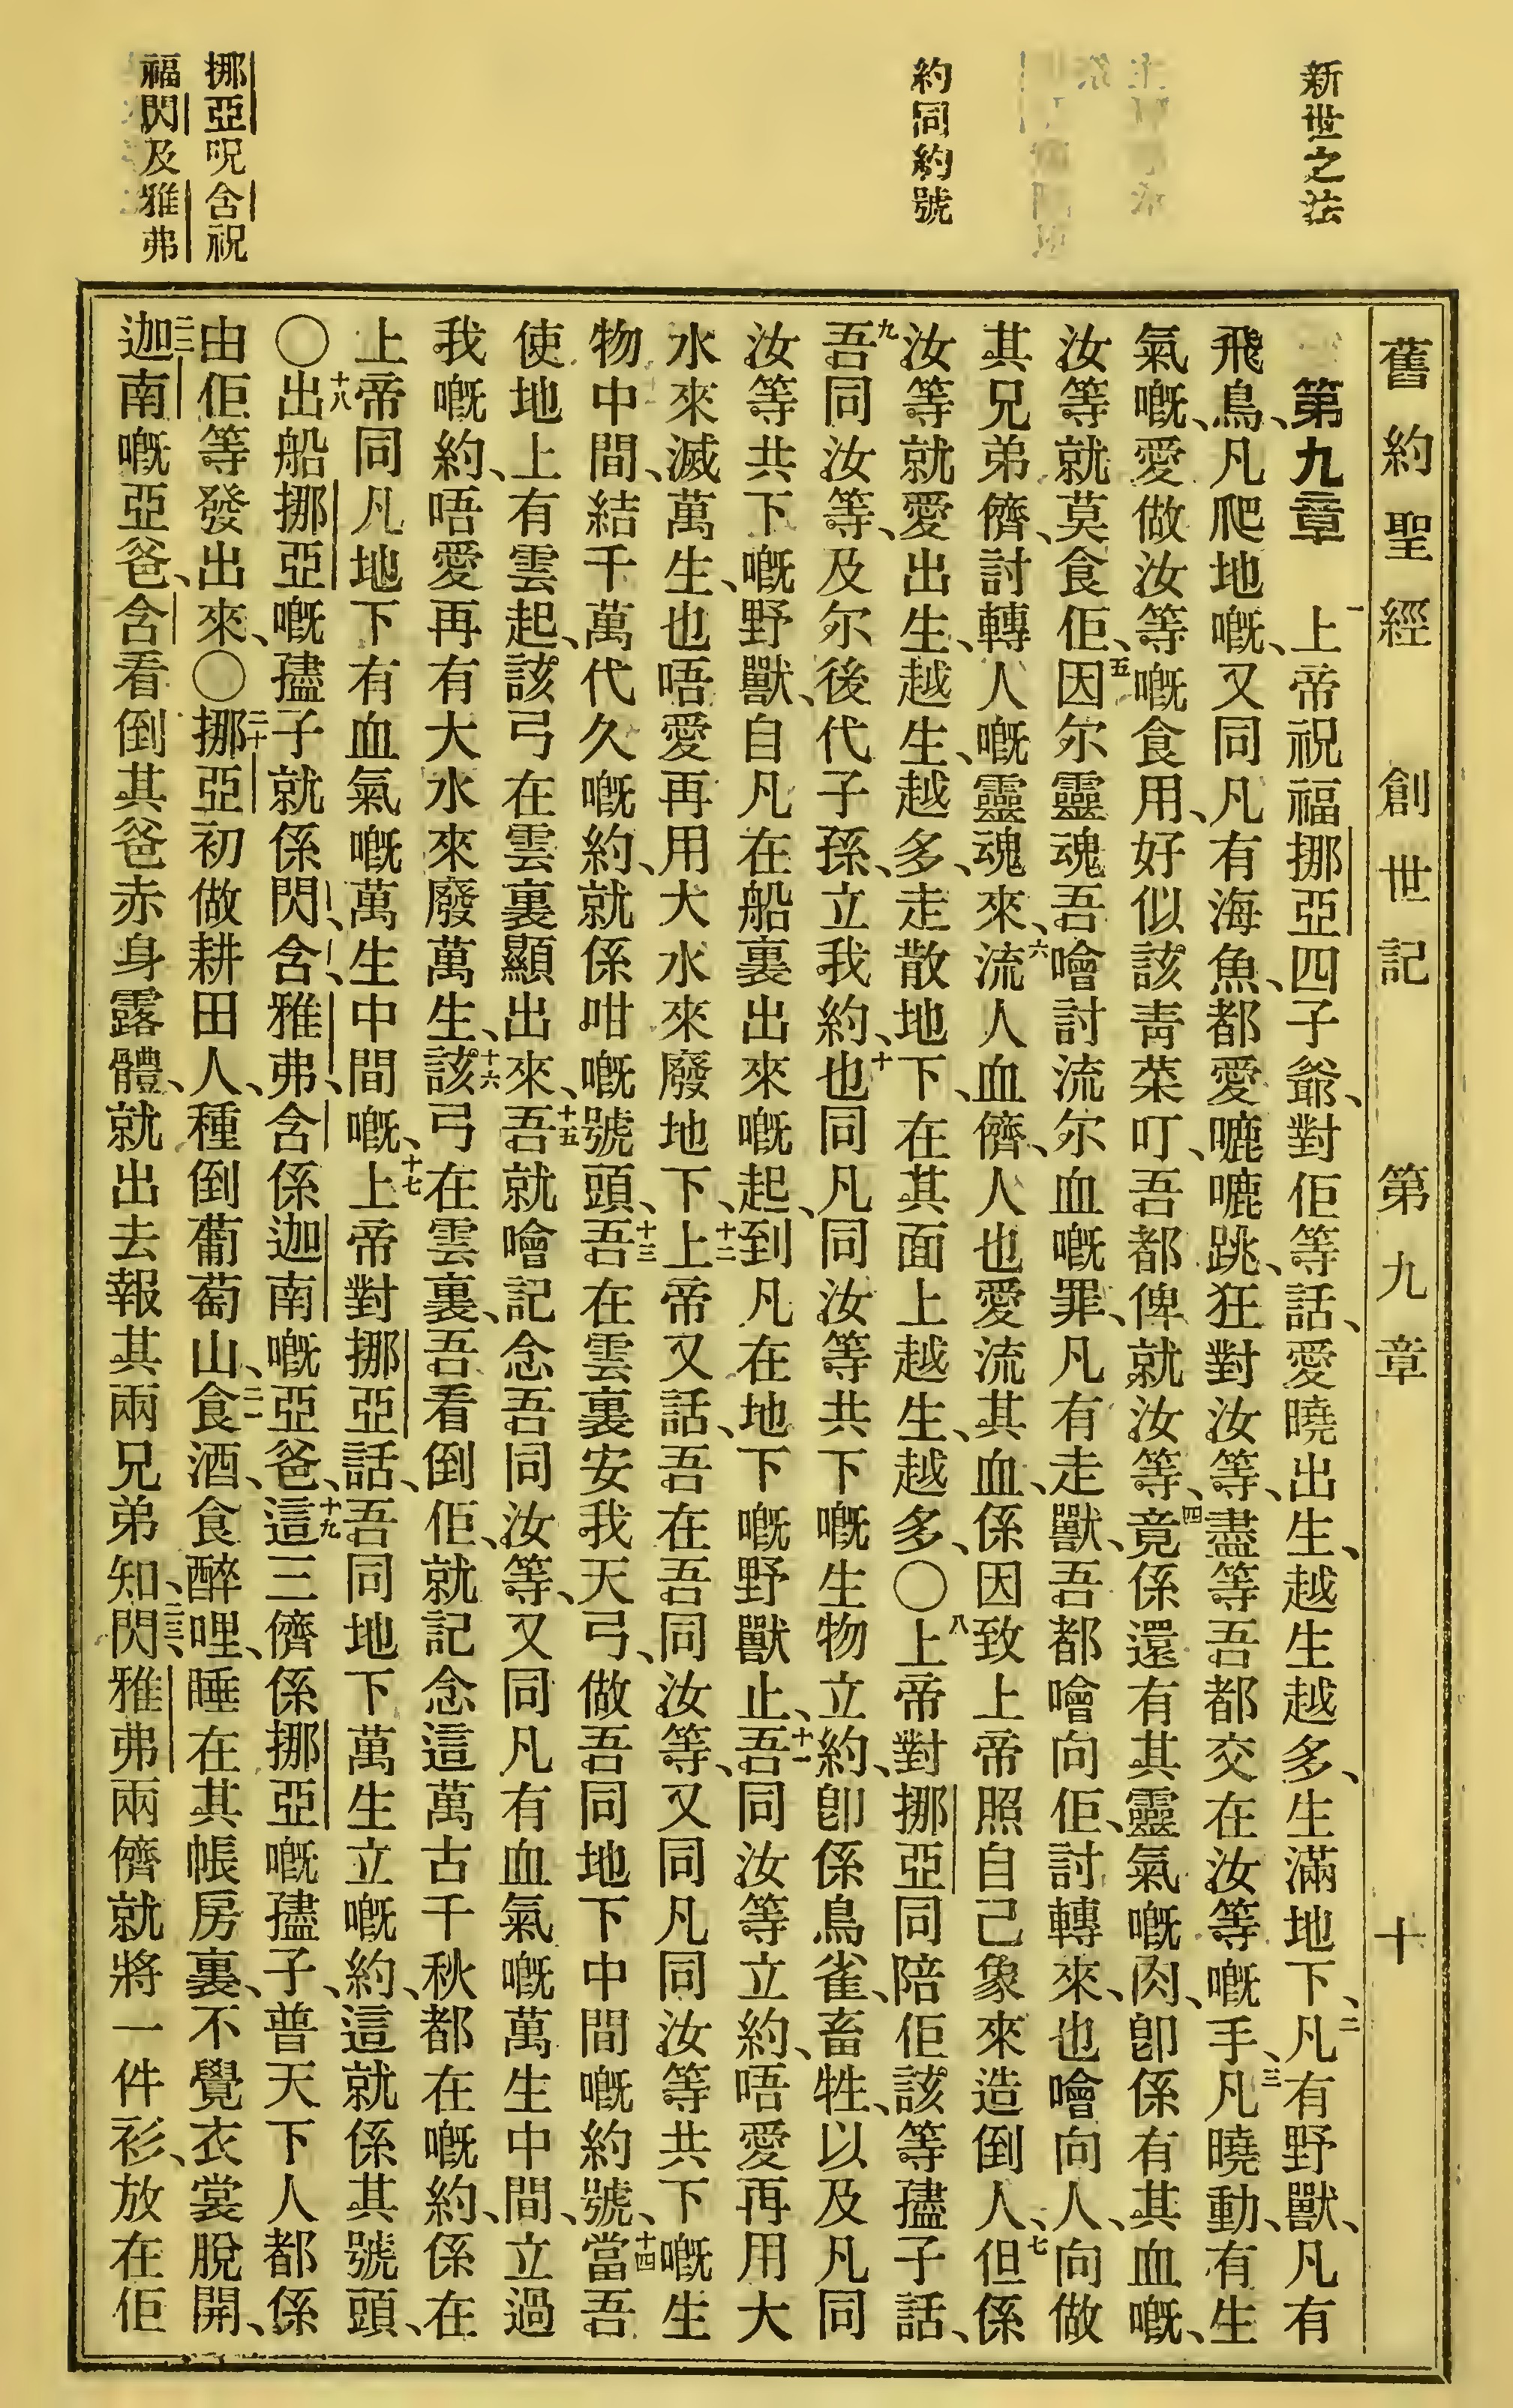 新世之法
約同約號
挪亞呪含祝
福閃及雅弗
舊約聖經 創世記 第九章 十
第九章 一上帝祝福挪亞四子爺、對佢等話、愛曉出生、越生越多、生滿地下、二凡有野獸、凡有
飛鳥、凡爬地嘅、又同凡有海魚、都愛嚦嚦跳、狂對汝等、盡等吾都交在汝等嘅手、三凡曉動、有生
氣嘅、愛做汝等嘅食用、好似該靑菜叮、吾都俾就汝等、四竟係還有其靈氣嘅肉、卽係有其血嘅、
汝等就莫食佢、五因尔靈魂吾噲討流尔血嘅罪、凡有走獸、吾都噲向佢、討轉來、也噲向人、向做
其兄弟儕、討轉人嘅靈魂來、六流人血儕、人也愛流其血、係因致上帝照自己象來造倒人、七但係
汝等就愛出生、越生越多、走散地下、在其面上越生、越多、〇八上帝對挪亞同陪佢該等孻子話、
九吾同汝等、及尔後代子孫、立我約、十也同凡同汝等共下嘅生物立約、卽係鳥雀、畜牲、以及凡同
汝等共下嘅野獸、自凡在船裏出來嘅起、到凡在地下嘅野獸止、十一吾同汝等立約、唔愛再用大
水來滅萬生、也唔愛再用大水來廢地下、十二上帝又話、吾在吾同汝等、又同凡同汝等共下嘅生
物中間、結千萬代久嘅約、就係咁嘅號頭、十三吾在雲裏安我天弓、做吾同地下中間嘅約號、十四當吾
使地上有雲起、該弓在雲裏顯出來、十五吾就噲記念吾同汝等、又同凡有血氣嘅萬生中間、立過
我嘅約、唔愛再有大水來廢萬生、十六該弓在雲裏、吾看倒佢、就記念這萬古千秋都在嘅約、係在
上帝同凡地下有血氣嘅萬生中間嘅、十七上帝對挪亞話、吾同地下萬生立嘅約、這就係其號頭、
〇十八出船挪亞嘅孻子就係閃、含、雅弗、含係迦南嘅亞爸、十九這三儕係挪亞嘅孻子、普天下人都係
由佢等發出來、〇二十挪亞初做耕田人、種倒葡萄山、二一食酒、食醉哩、睡在其帳房裏、不覺衣裳脫開、
二二迦南嘅亞爸、含看倒其爸赤身露體、就出去報其兩兄弟知、二三閃、雅弗兩儕就將一件衫、放在佢